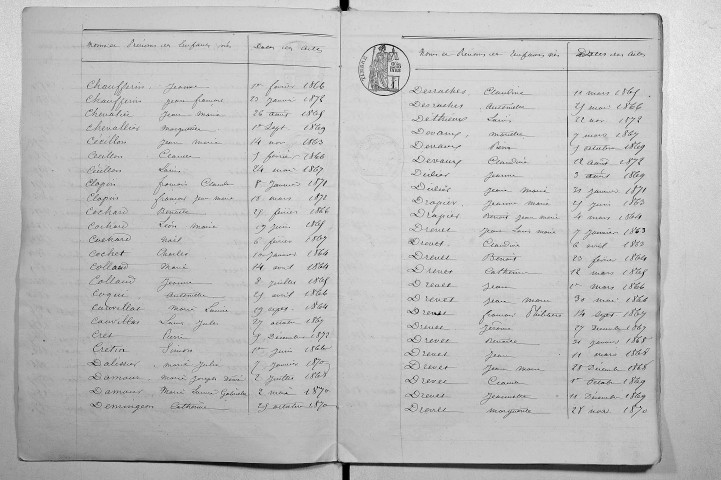 Noms et Prénoms des Enfants nés Dates des actes
Chaufferin Jeanne 1er février 1866
Chaufferin Jean françois 23 janvier 1872
Chevalier Jean Marie 26 août 1865
Chevallier marguerite 1er Sept. 1869
Cotillon jean marie 14 nov. 1863
Cuillon Claudine 7 février 1866
Cuillon Louis 24 mai 1867
Clapis françois Claudius 8 Janvier 1871
Clapis françois jean marie 18 mars 1873
Cochard Benoite 25 février 1866
Cochard Léon Marie 19 juin 1865
Cochard Noël 6 février 1867
Cochet Charles 10 janvier 1864
Colland Marie 14 avril 1864
Colland Jeanne 8 juillet 1865
Coque Antoinette 25 avril 1866
Cuvrillat Marie Louise 1864
Cuvrillat Louis Jules 27 octobre 1867
Cret Pierre 9 Décembre 1872
Cretin Simon 1er Juin 1866
Dalissier marie Julie 7 janvier 1870
Damour Marie Joseph 2 juillet 1868
Damour Marie Louise Gabrielle 2 mai 1870
Demingeon Catherine 25 octobre 1870
Noms et Prénoms des Enfants nés Dates des actes
Desraches Claudine 11 mars 1865
Desraches Antoinette 25 mai 1866
Delthieux Louis 22 nov. 1872
Devaux 7 mars 1867
Devaux Pierre 9 octobre 1869
Devaux Claudine 12 août 1872
Didier Jeanne 3 août 1869
Didier Jeanne Marie 21 janvier 1871
Drapier Jeanne marie 25 juin 1863
Drapier Benoit jean marie 4 mars 1864
Drevet Jean Louis marie 7 janvier 1863
Drevet Claudine 6 avril 1863
Drevet Benoit 23 février 1864
Drevet Catherine 12 mars 1865
Drevet Jean 1er mars 1866
Drevet Jean marie 30 mai 1866
Drevet françois Philibert 14 Sept 1867
Drevet Jérome 27 Décembre 1867
Drevet Benoite 21 janvier 1868
Drevet Jean 11 mars 1868
Drevet Jean Marie 28 Décembre 1868
Drevet Claude 1er Octobre 1869
Drevet Jeannette 18 Décembre 1869
Drevet marguerite 28 nov. 1870